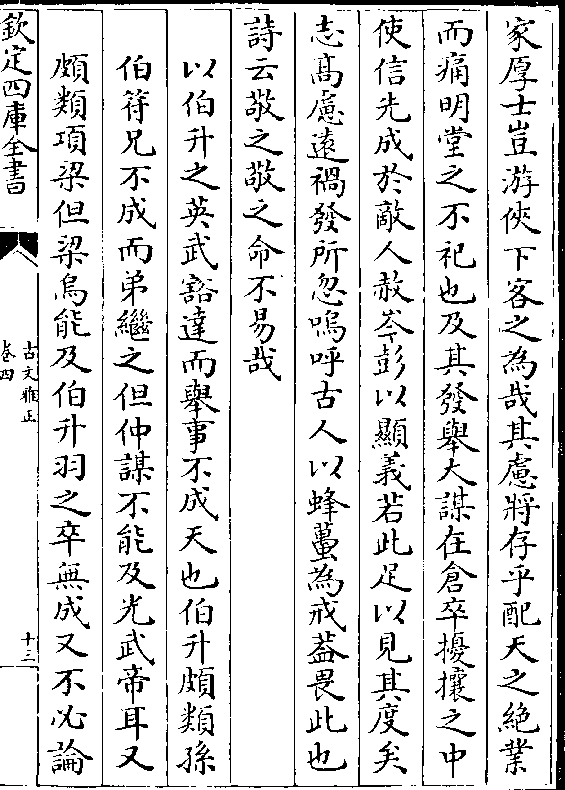 家厚士豈游俠下客之為哉其慮將存乎配天之絕業
而痛明堂之不祀也及其發舉大謀在倉卒擾攘之中
使信先成於敵人赦岑彭以顯義若此足以見其度矣
志高慮遠禍發所忽嗚呼古人以蜂蠆為戒葢畏此也
詩云敬之敬之命不易哉
以伯升之英武豁達而舉事不成天也伯升頗類孫
伯符兄不成而弟繼之但仲謀不能及光武帝耳又
頗類項梁但梁烏能及伯升羽之卒無成又不必論
欽定四庫全書
古文雅正
卷四
十三